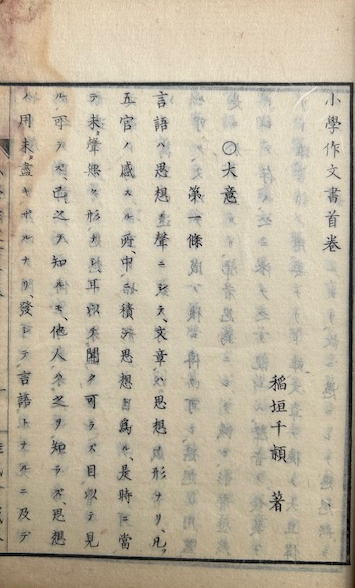 小學作文書首卷
稲垣千頴 著
〇大意
第一條
言語ハ思想ノ聲ニシテ、文章ハ思想ノ形ナリ、凡ソ
五官ノ感スル所、中ニ積テ思想ト爲ル、是時ニ當
テ未聲無ク形無シ、耳以テ聞ク可ラズ、目以テ見
ル可ラズ、己之ヲ知ルモ、他人ハ之ヲ知ラズ、思想
ノ用未盡キザルナリ、發シテ言語トナルニ及テ